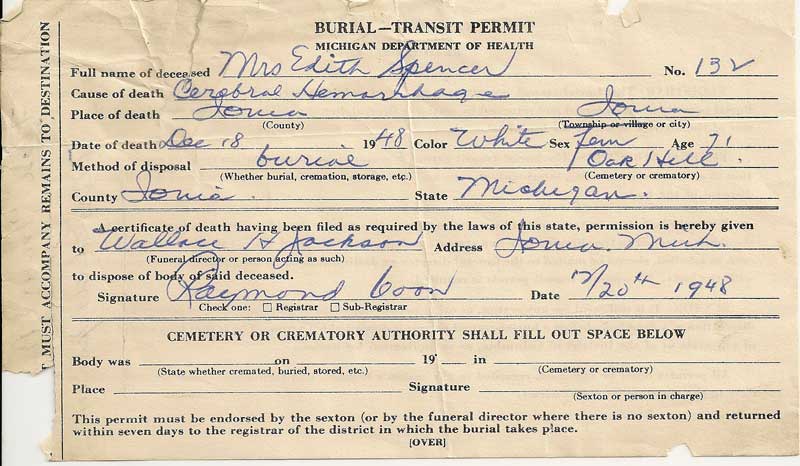 BURIAL—TRANSIT PERMIT
MICHIGAN DEPARTMENT OF HEALTH
Full name of deceased Mrs Edith Spencer No. 132
Cause of death Cerebral Hemorrhage
Place of death Ionia Ionia
(County) (Township or village or city)
Date of death Dec 18 1948 Color White Sex Fem Age 71
Method of disposal burial Oak Hill.
(Whether burial, cremation, storage, etc.) (Cemetery or crematory)
County Ionia. State Michigan.
A certificate of death having been filed as required by the laws of this state, permission is hereby given
to Wallace H Jackson Address Ionia. Mich.
(Funeral director or person acting as such)
to dispose of body of said deceased.
Signature Raymond Coon Date 12/20th 1948
Check one: ☐ Registrar ☐ Sub-Registrar
CEMETERY OR CREMATORY AUTHORITY SHALL FILL OUT SPACE BELOW
Body was on 19 in
(State whether cremated, buried, stored, etc.) (Cemetery or crematory)
Place Signature
(Sexton or person in charge)
This permit must be endorsed by the sexton (or by the funeral director where there is no sexton) and returned
within seven days to the registrar of the district in which the burial takes place.
[OVER]
MUST ACCOMPANY REMAINS TO DESTINATION